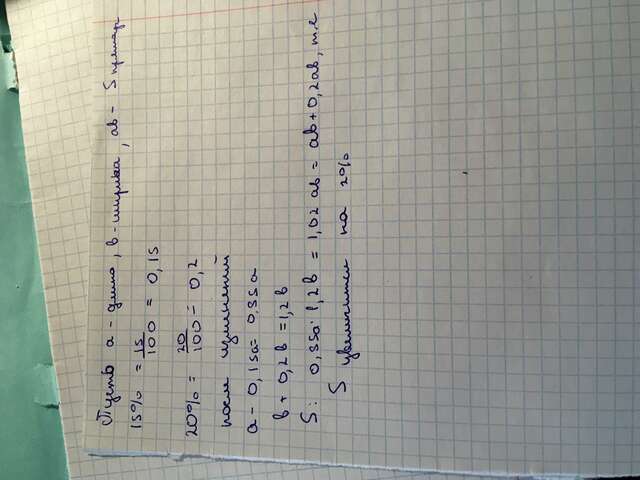 Пусть a - длина, в - ширина, ав - S прямоуг
15% = 15/100 = 0,15
20% = 20/100 = 0,2
после изменений
a - 0,15a = 0,85a
в + 0,2в = 1,2в
S: 0,85a · 1,2в = 1,02 ав = ав + 0,2ав, т.е
S увеличится на 2%